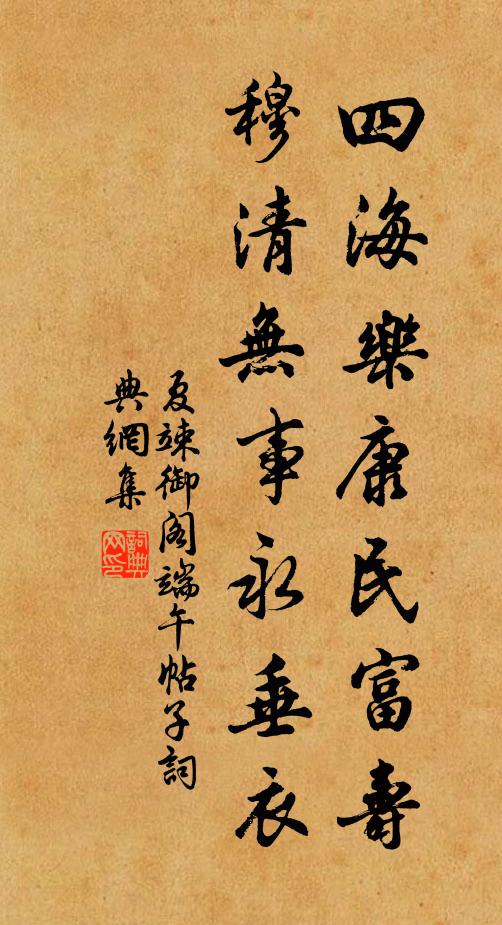 四海樂康民富壽
穆清無事永垂衣
夏竦御阁端午帖子詞
典網集
詞典网印